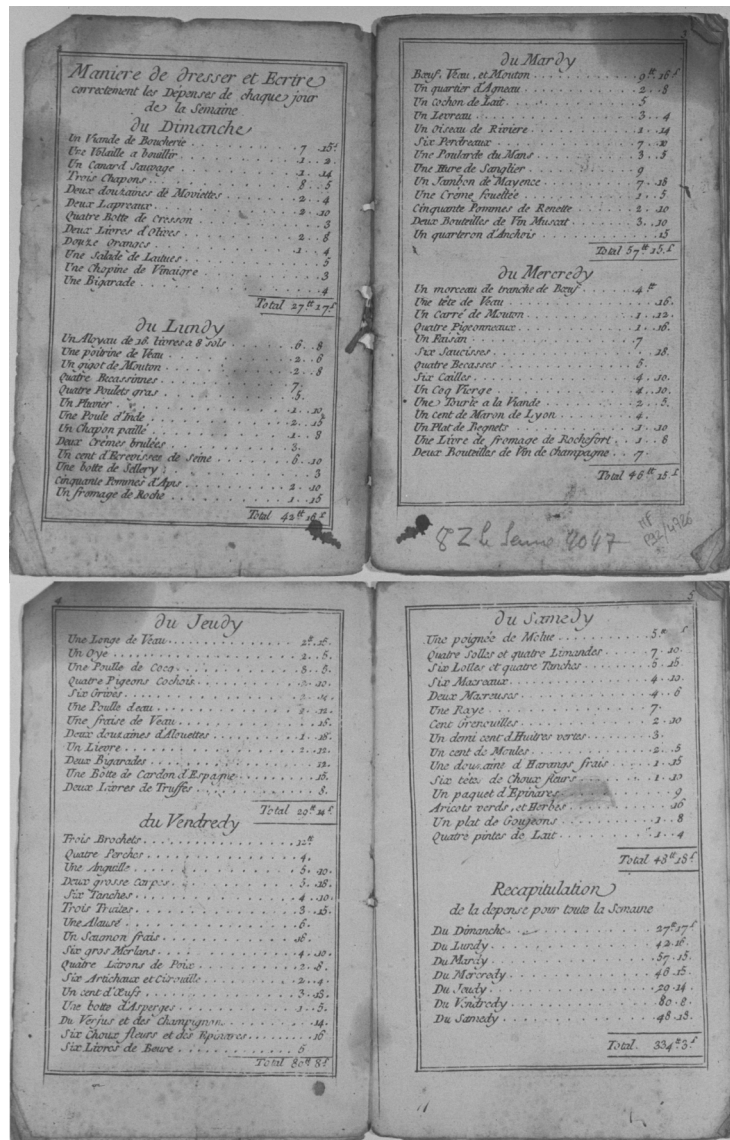 2
Maniere de dresser et Ecrire
correctement les Depenses de chaque jour
de la Semaine
du Dimanche
Un Viande de Boucherie 7 15 s
Une Volaille a bouillir 1 2
Un Canard Sauvage 1 14
Trois Chapons 8 5
Deux douzaines de Moviettes 2 4
Deux Lapreaux 2 10
Quatre Botte de Cresson 3
Deux Livres d'Olives 2 8
Douze Oranges 1 4
Une Salade de Laitues 5
Une Chopine de Vinaigre 3
Une Bigarade 4
Total 27 tt 17 s
du Lundy
Un Aloyau de 16 livres a 8 sols 6 8
Une poitrine de Veau 2 6
Un gigot de Mouton 2 8
Quatre Becassinnes 7
Quatre Poulets gras 5
Un Pluvier 1 10
Une Poule d'Inde 2 15
Un Chapon paillé 1 8
Deux Crêmes brulées 3
Un cent d'Ecrevisses de Seine 6 10
Une botte de Sellery 3
Cinquante Pommes d'Apis 2 10
Un fromage de Roche 1 15
Total 42 tt 16 s
3
du Mardy
Bœuf, Veau, et Mouton 9 tt 16 s
Un quartier d'Agneau 2 8
Un cochon de Lait 5
Un Levreau 3 4
Un Oiseau de Riviere 1 14
Six Perdreaux 7 10
Une Poularde du Mans 3 5
Une Hure de Sanglier 9
Un Jambon de Mayence 7 18
Une Crême fouettée 1 5
Cinquante Pommes de Renette 2 10
Deux Bouteilles de Vin Muscat 3 10
Un quarteron d'Anchois 15
Total 57 tt 15 s
du Mercredy
Un morceau de tranche de Bœuf 4 tt
Une tête de Veau 16
Un Carré de Mouton 1 12
Quatre Pigeonneaux 1 16
Un Faisan 7
Six Saucisses 18
Quatre Becasses 5
Six Cailles 4 10
Un Coq Vierge 4 10
Une Tourte a la Viande 2 5
Un cent de Maron de Lyon 4
Un Plat de Begnets 1 10
Une Livre de fromage de Rochefort 1 8
Deux Bouteilles de Vin de champagne 7
Total 46 tt 15 s
8 Z le Senne 4047
MF
P92/4926
du Jeudy
Une Longe de Veau 2 tt 16
Un Oye 2 5
Une Poulle de Cocq 8 8
Quatre Pigeons Cochois 10
Six Grives 14
Une Poulle d'eau 2 12
Une fraise de Veau 15
Deux douzaines d'Alouettes 1 18
Un Lievre 2 12
Deux Bigarades 12
Une Botte de Cardon d'Espagne 15
Deux Livres de Truffes 8
Total 29 tt 14 s
du Vendredy
Trois Brochets 12 tt
Quatre Perches 4
Une Anguille 5 10
Deux grosse Carpes 3 18
Six Tanches 4 10
Trois Truites 3 15
Une Alause 6
Un Saumon frais 16
Six gros Merlans 4 10
Quatre Litrons de Poix 2 8
Six Artichaux et Citrouille 2 4
Un cent d'Œufs 3 15
Une botte d'Asperges 1 5
Du Verjus et des Champignon 14
Six Choux fleurs et des Epinares 16
Six Livres de Beure 5
Total 80 tt 8 s
5
du Samedy
Une poignée de Molue 5 tt s
Quatre Solles et quatre Limandes 7 10
Six Lottes et quatre Tanches 6 15
Six Macreaux 4 10
Deux Macreuses 4 6
Une Raye 7
Cent Grenouilles 2 10
Un demi cent d'Huitres vertes 3
Un cent de Moules 2 5
Une douzaine d'Harangs frais 1 15
Six têtes de Choux fleurs 1 10
Un paquet d'Epinares 9
Aricots verds, et Herbes 16
Un plat de Goujeons 1 8
Quatre pintes de Lait 1 4
Total 48 tt 18 s
Recapitulation
de la depense pour toute la Semaine
Du Dimanche 27 tt 17 s
Du Lundy 42 16
Du Mardy 57 15
Du Mercredy 46 15
Du Jeudy 29 14
Du Vendredy 80 8
Du Samedy 48 18
Total 334 tt 3 s